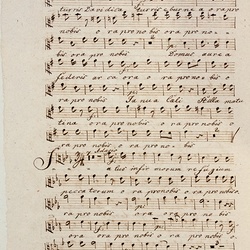 turris Davidica turris eburnea ora pro
nobis o ra pro nobis ora pro no-
bis ora pro nobis Domus aurea
federis arca ora o ra pro nobis o
ra pro nobis Janua Cæli Stella matu
tina ora pro nobis ora pro nobis o
ra pro nobis ora pro nobis
Salus infirmorum refugium
peccatorum o ra pro nobis ora pro nobis
ra pro nobis ora pro nobis o
ra pro nobis ora pro no bis